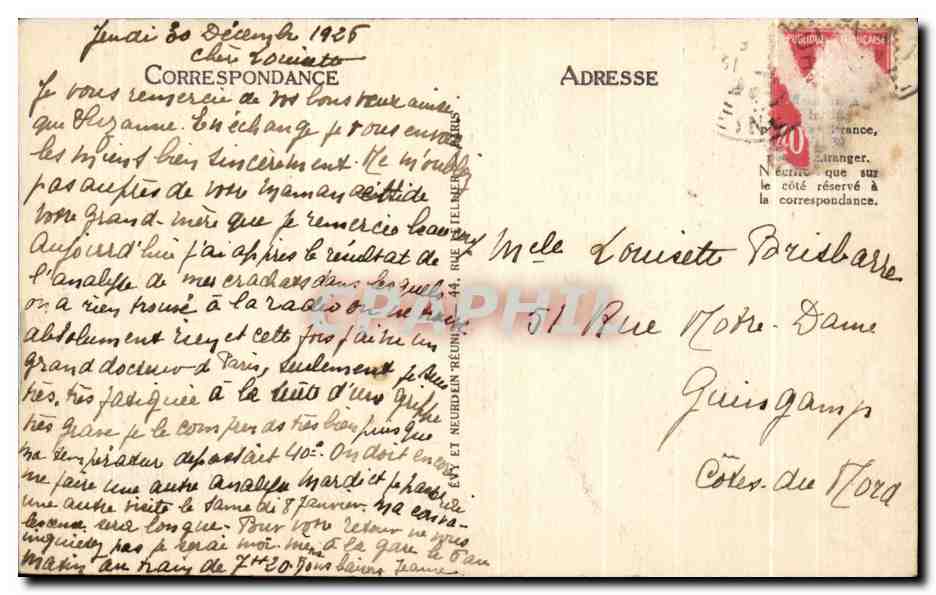 Jeudi 30 Décembre 1926
Chère Louisette
CORRESPONDANCE
Je vous remercie de vos bons vœux ainsi
que Suzanne. En échange je vous envoie
les miens bien sincèrement. Ne m'oubliez
pas auprès de votre maman et de
votre grand-mère que je remercie beaucoup
Aujourd'hui j'ai appris le résultat de
l'analyse de mes crachats dans lesquels
on a rien trouvé à la radio on ne
absolument rien et cette fois j'ai vu un
grand docteur d Paris, seulement je suis
très, très fatiguée à la suite d'une grippe
très grave je le comprends très bien puisque
ma température dépassait 40°. On doit encore
me faire une autre analyse mardi et je
une autre visite le samedi 8 Janvier. Ma conva-
lescence sera longue. Pour votre retour ne vous
inquiétez pas je serai moi-même à la gare le 6 au
matin au train de 7h20. Bons baisers Jeanne
ÉVY ET NEURDEIN RÉUNIS, 44, RUE LETELLIER, PARIS
CPAPHIL
ADRESSE
PUBLIQUE FRANÇAISE
40
rance,
tranger.
N'écrire que sur
le côté réservé à
la correspondance.
Melle Louisette Brisbarre
51 Rue Notre-Dame
Guingamp
Côtes-du-Nord